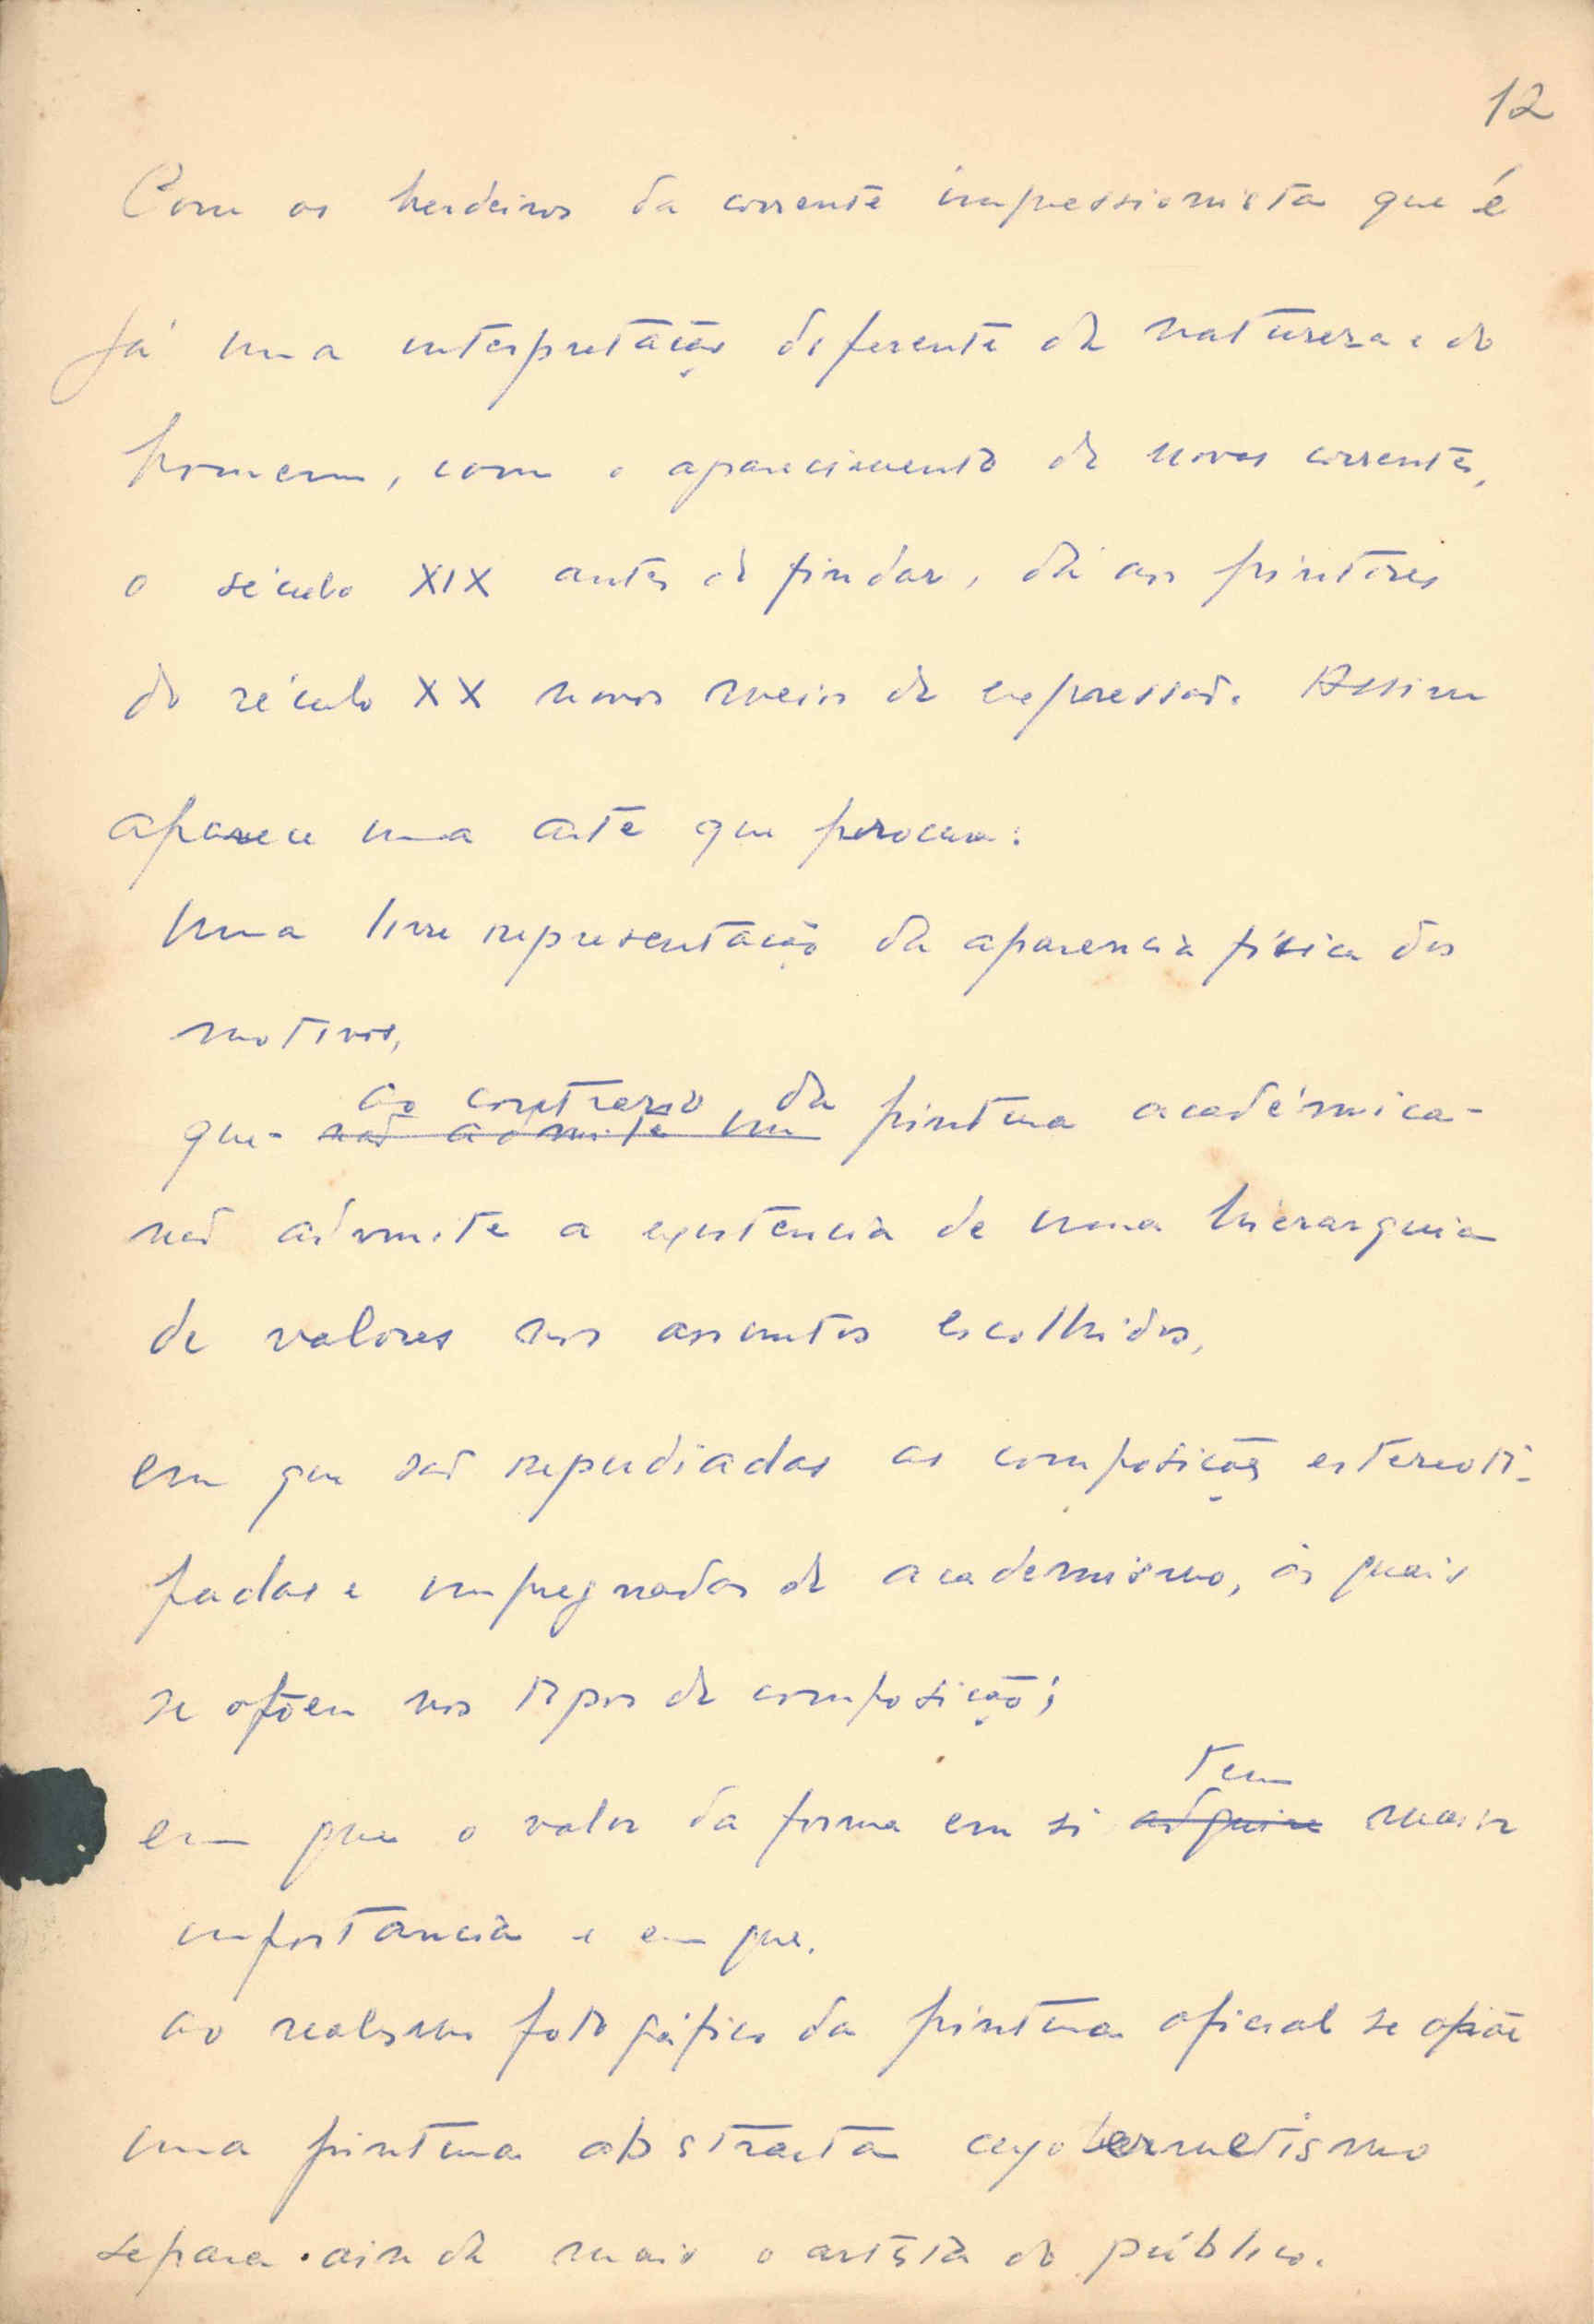 12
Com os herdeiros da corrente impressionista que é
já uma interpretação diferente da natureza e do
homem, com o aparecimento de novas correntes,
o século XIX antes de findar, dá aos pintores
do século XX novos meios de expressão. Assim
aparece uma arte que procura:
Uma livre representação da aparencia física dos
motivos,
ao contrario da
que - não admite um pintura académica -
não admite a existencia de uma hierarquia
de valores nos assuntos escolhidos,
em que são repudiadas as composições estereoti-
padas e impregnadas de academismo, ás quais
se opõem nos tipos de composição;
tem
em que o valor da forma em si adquire maior
importancia e em que,
ao realismo fotográfico da pintura oficial se opõe
uma pintura abstracta cujo hermetismo
separa ainda mais o artista do público.